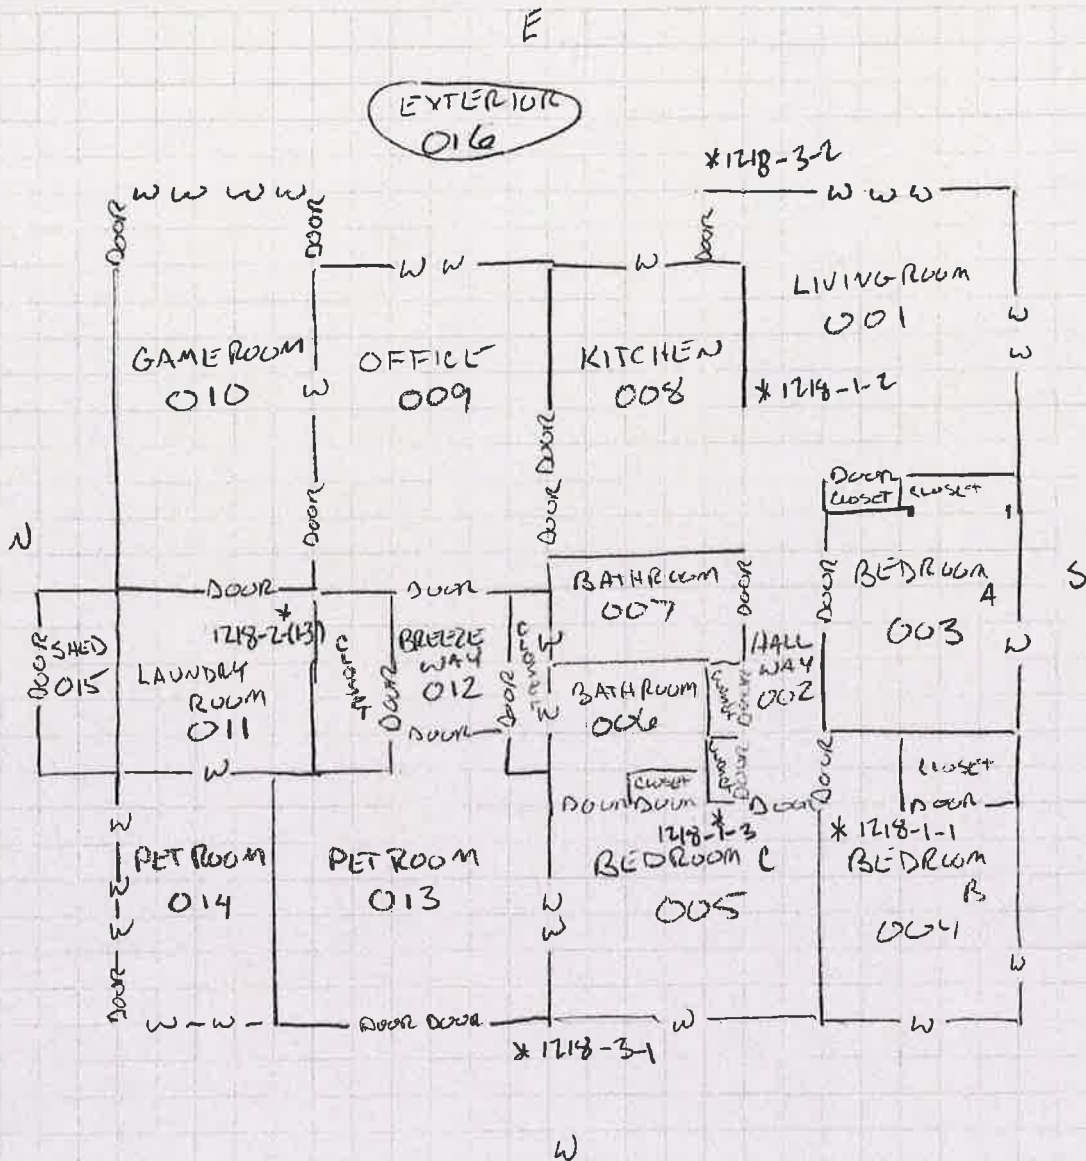 E
EXTERIOR
016
*1218-3-2
W W W W
W W W
DOOR
DOOR
DOOR
W W
W
LIVINGROOM
001
W
W
GAMEROOM
010
W
OFFICE
009
KITCHEN
008
*1218-1-2
DOOR
DOOR DOOR
DOOR
CLOSET
CLOSET
N
S
DOOR
DOOR
*
1218-2-(1-3)
BATHROOM
007
DOOR
DOOR
BEDROOM
A
003
W
DOOR
SHED
015
LAUNDRY
ROOM
011
DOOR
BREEZE
WAY
012
DOOR
DOOR
W
W
W
BATHROOM
006
CLOSET
DOOR
HALL
WAY
002
W
CLOSET
DOOR
CLOSET
DOOR
DOOR
CLOSET
DOOR
DOOR
DOOR
*
1218-1-3
*1218-1-1
W
W
W
W
DOOR
PETROOM
014
PETROOM
013
W
W
BEDROOM C
005
BEDROOM
B
004
W
W-W-
DOOR DOOR
W
W
*1218-3-1
W